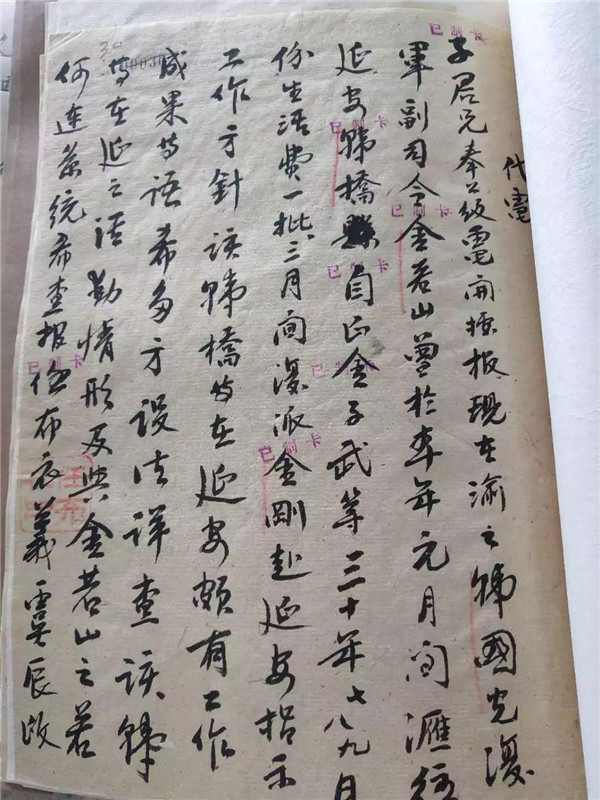 代電
子君兄奉上级電開據报現在渝之韩國光復
軍副司令金若山曾於本年元月間滙往
延安韩橋自正金子武等三十年七八九月
份生活費一批三月間復派金剛赴延安指示
工作方針该韩橋等在延安頗有工作
成果等语希多方設法详查该韩
等在延之活動情形及與金若山之若
何連系统希查报伍布衣義辰
已制卡
已制卡
已制卡
已制卡
已制卡
已制卡
已制卡
30